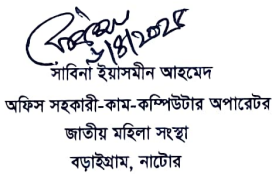 সাবিনা ইয়াসমীন আহমেদ
অফিস সহকারী-কাম-কম্পিউটার অপারেটর
জাতীয় মহিলা সংস্থা
বড়াইগ্রাম, নাটোর